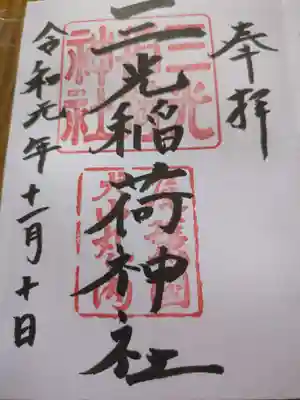 奉拝
三光稲荷神社
令和元年十一月十日
三光
神社